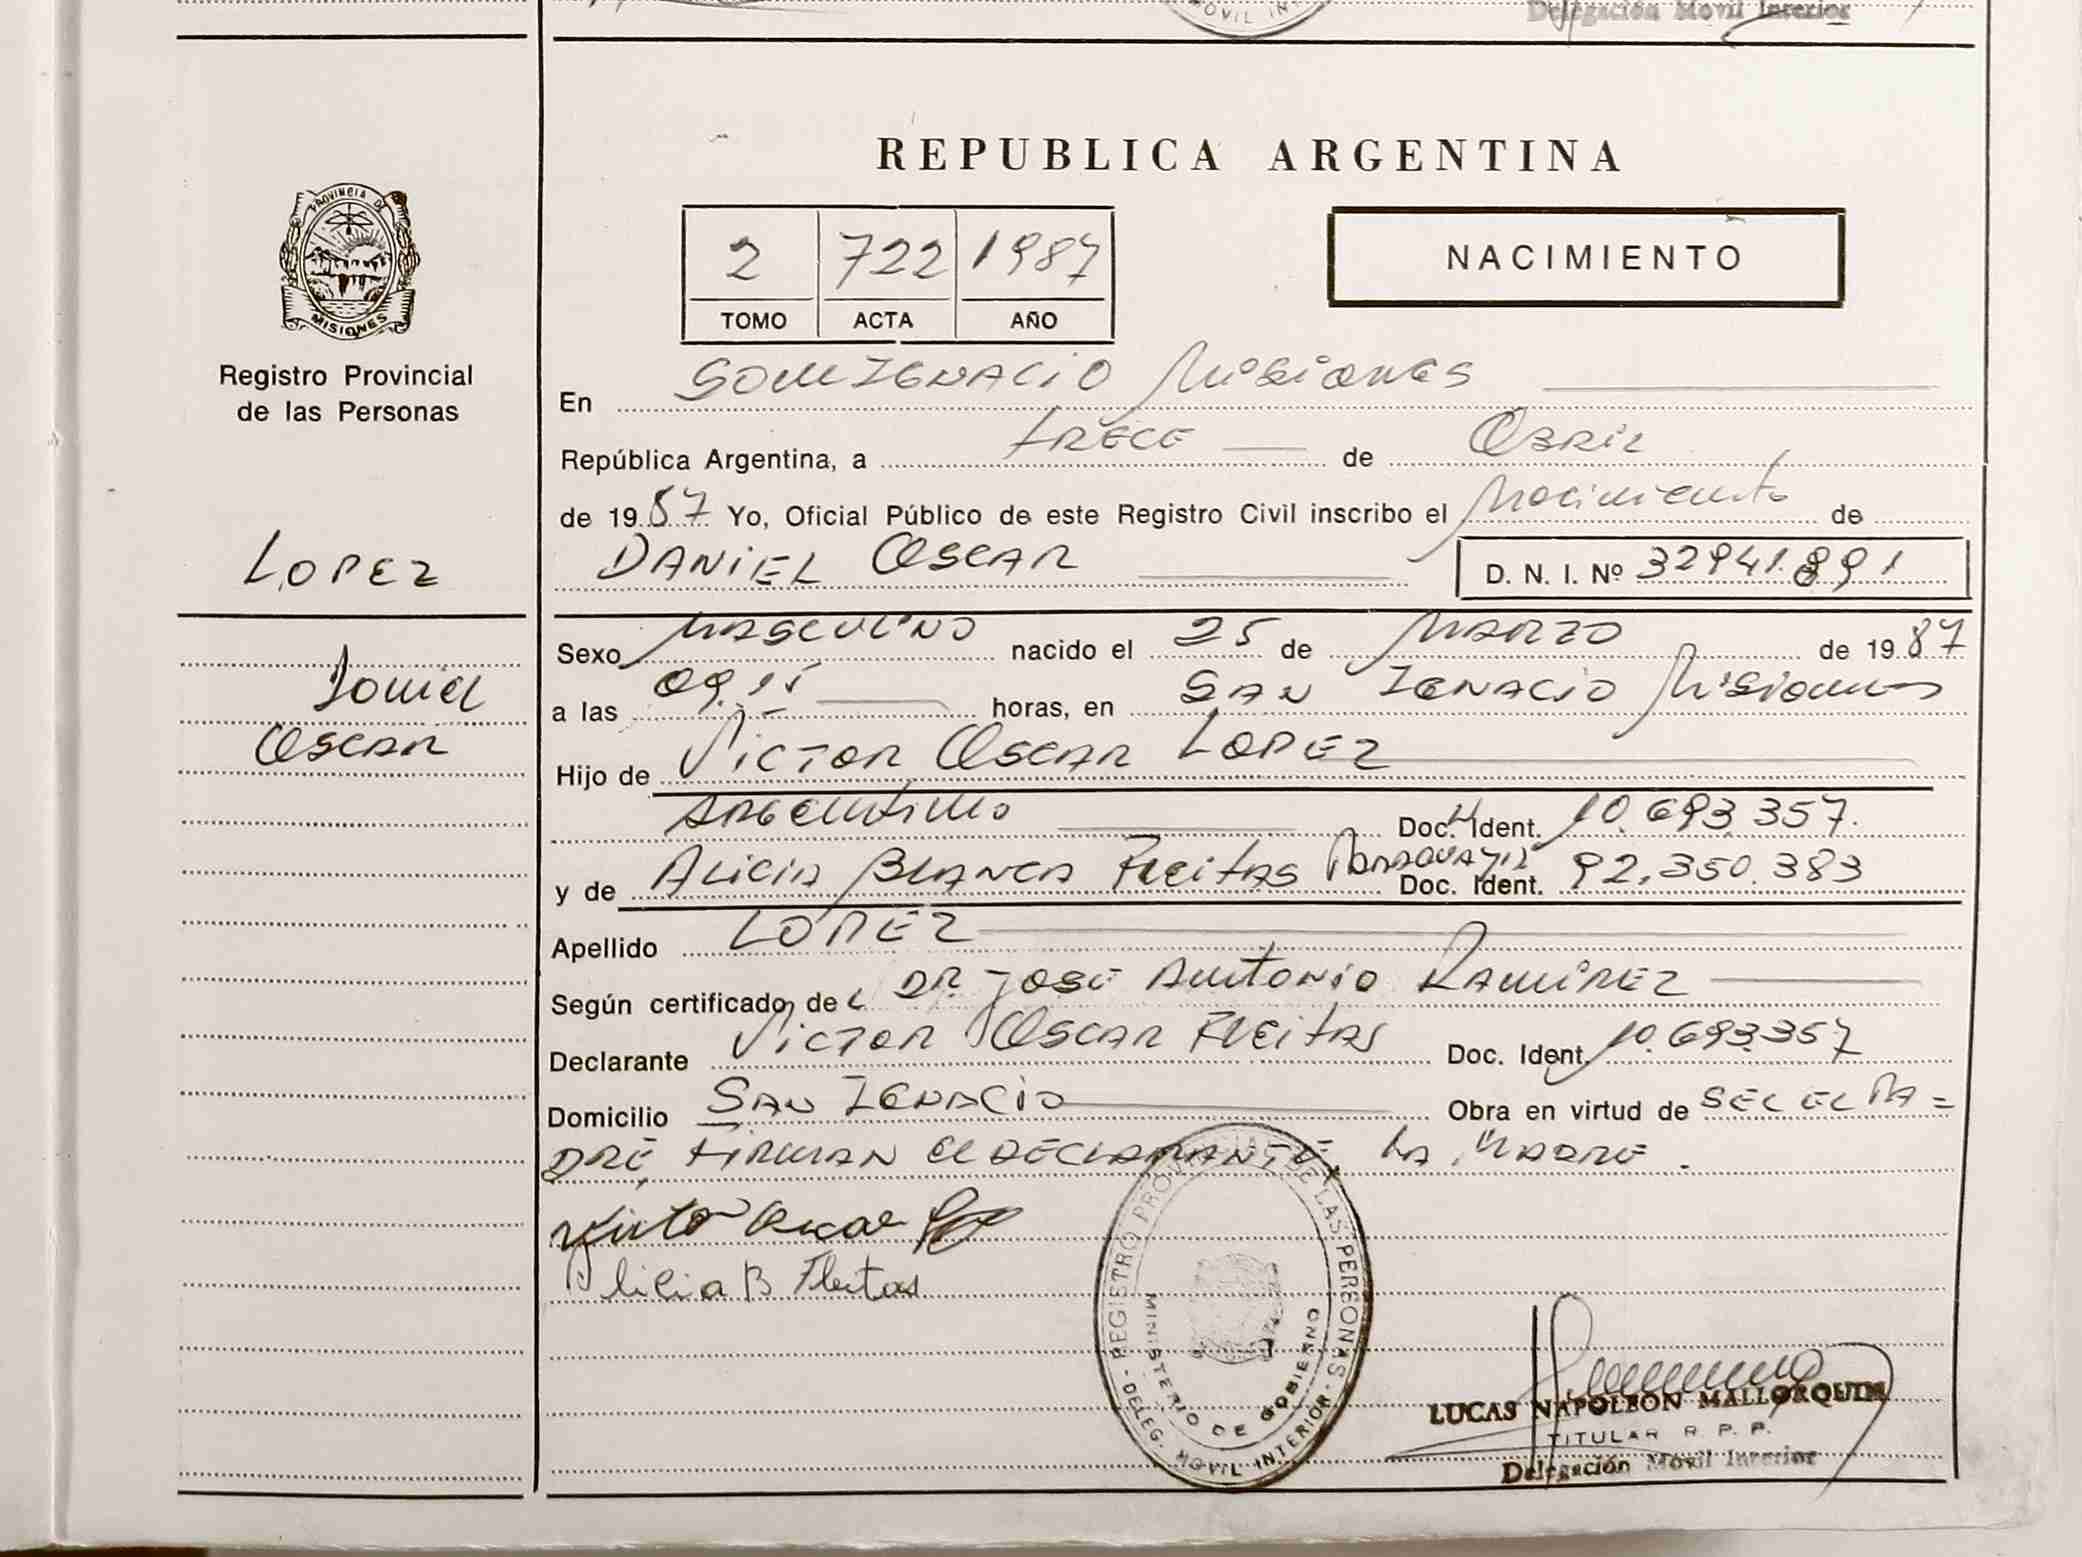 MOVIL IN
Delegación Movil Interior
PROVINCIA DE
MISIONES
Registro Provincial
de las Personas
LOPEZ
Daniel
OSCAR
REPUBLICA ARGENTINA
2 722 1987
TOMO ACTA AÑO
NACIMIENTO
En San IGNACIO Misiones
República Argentina, a trece de Abril
de 1987 Yo, Oficial Público de este Registro Civil inscribo el Nacimiento de
DANIEL OSCAR D. N. I. Nº 32941.891
Sexo MASCULINO nacido el 25 de MARZO de 1987
a las 09,15 horas, en SAN IGNACIO Misiones
Hijo de VICTOR OSCAR LOPEZ
ARGENTINO Doc. Ident. 10.693.357.
y de ALICIA BLANCA FLEITAS PARAGUAYA Doc. Ident. 92.350.383
Apellido LOPEZ
Según certificado de DR. JOSE ANTONIO RAMIREZ
Declarante VICTOR OSCAR FLEITAS Doc. Ident. 10.693.357
Domicilio SAN IGNACIO Obra en virtud de SEL EL PA=
DRE FIRMAN El DECLARANTE, LA MADRE.
Victor Oscar
Alicia B Fleitas
REGISTRO PROVINCIAL DE LAS PERSONAS
MINISTERIO DE GOBIERNO
DELEG. MOVIL INTERIOR
LUCAS NAPOLEON MALLORQUIN
TITULAR R. P. P.
Delegación Movil Interior